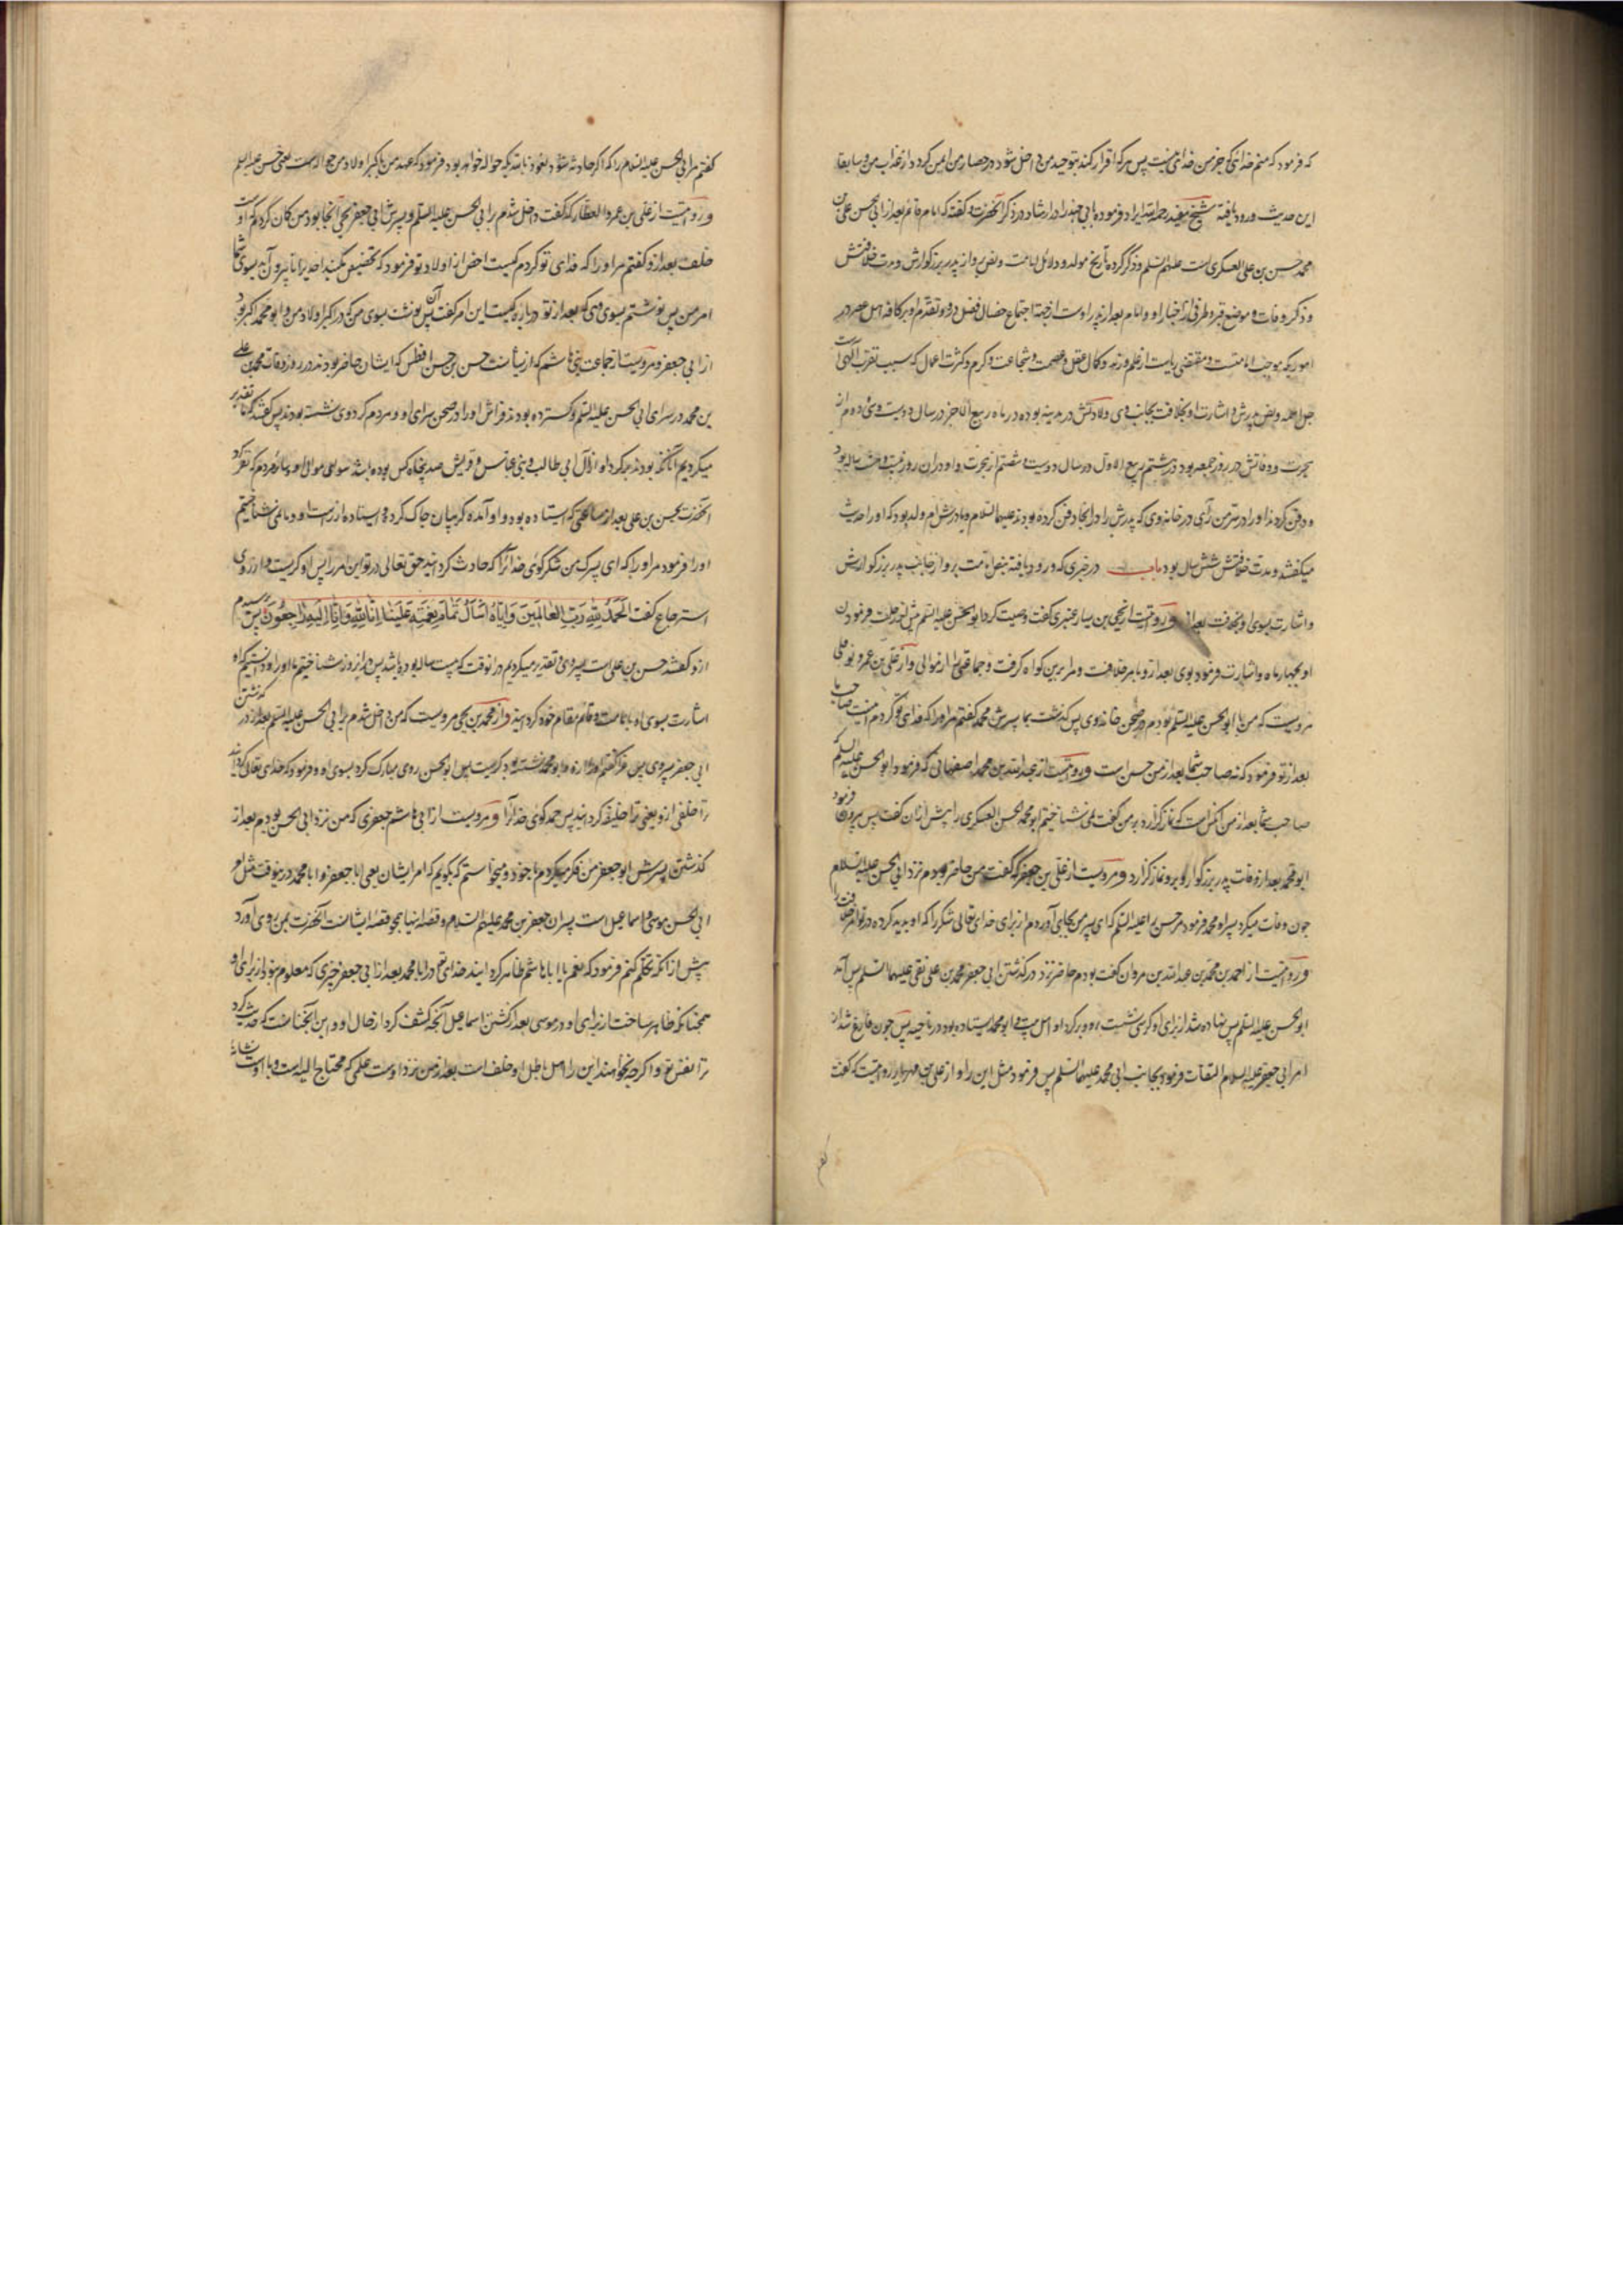 که فرمود که منم خدائی که جز من خدائی نیست پس هر که اقرار کند بتوحید من داخل شود در حصار من ایمن گردد از عذاب من و سابقا
این حدیث ورود یافته شیخ مفید رحمه الله ایراد فرموده بابی چند را در ارشاد در ذکر آنحضرت و گفته که امام قائم بعد از ابی الحسن علی بن
محمد حسن بن علی العسکری است علیهم السلم و ذکر کرده تاریخ مولد و دلائل امامت و نص بر او از پدر بزرگوارش و مدت خلافتش
و ذکر وفات و موضع قبر و طرفی از اخبار او و امام بعد از پدر اوست از جهة اجتماع خصال فضل درو و تقدم او بر کافه اهل عصر در
اموریکه موجب امامتست و مقتضی ریاست از علم و زهد و کمال عقل و عصمت و شجاعت و کرم و کثرت اعمال که سبب تقرب الهی است
جل اسمه و نص پدرش و اشارت او بخلافت بجانب وی ولادتش در مدینه بوده در ماه ربیع الآخر در سال دویست و سی و دوم از
هجرت و وفاتش در روز جمعه بود در هشتم ربیع الاول در سال دویست و شصتم از هجرت و او در آن روز بیست و هشت ساله بود
و دفن کردند او را در سر من رآی در خانه وی که پدرش را در آنجا دفن کرده بودند علیهما السلام و مادرش ام ولد بود که او را حدیث
میگفتند و مدت خلافتش شش سال بود باب در خبری که ورود یافته بنص امامت برو از جانب پدر بزرگوارش
و اشارت بسوی او بخلافت بعد ازو و رویست از یحیی بن یسار عنبری گفت وصیت کرد ابو الحسن علیه السلم پیش از رحلت فرمودن
او بچهار ماه و اشارت فرمود بوی بعد ازو بامر خلافت و مرا برین گواه گرفت و جماعتی را از موالی و از علی بن عمرو نوفلی
مرویست که من با ابو الحسن علیه السلم بودم در صحن خانه وی پس گذشت بما پسرش محمد گفتم مر او را که فدای تو گردم اینست صاحب ما
بعد از تو فرمود که نه صاحب شما بعد از من حسن است و رویست از عبد الله بن محمد اصفهانی که فرمود ابو الحسن علیه السلم که
صاحب شما بعد از من آنکس است که نماز گزارد بر من گفت نمی شناختیم ابو محمد الحسن العسکری را پیش از آن گفت پس بیرون فرمود
ابو محمد بعد از وفات پدر بزرگوار او برو نماز گزارد و مرویست از علی بن جعفر که گفت من حاضر بودم نزد ابی الحسن علیه السلام
چون وفات میکرد پسر او محمد فرمود مر حسن را علیه السلم که ای پسر من بجای آور مر از برای خدای تعالی شکر را که او پدید کرده در تو امر خلافت را
و رویست از احمد بن محمد بن عبد الله بن مروان گفت بودم حاضر نزد درگذشتن ابی جعفر محمد بن علی نقی علیهما السلم پس آمد
ابو الحسن علیه السلم پس نهاده شد از برای او کرسی نشست بر او و بر گرد او اهل بیت و ابو محمد ایستاده بود در ناحیه پس چون فارغ شد از
امر ابی جعفر علیه السلام التفات فرمود بجانب ابی محمد علیهما السلم پس فرمود مثل این را و از علی بن مهزیار رویست که گفت
گفتم
گفتم مر ابی الحسن علیه السلام را که اگر حادثه شود نعوذ بالله بکه حواله خواهد بود فرمود که عهد من باکبر اولاد من حواله است یعنی حسن علیه السلم
و رویست از علی بن عمرو العطار که گفت داخل شدم بر ابی الحسن علیه السلم و پسرش ابی جعفر بحی آنجا بود من گمان کردم که اوست
خلف بعد ازو گفتم مر او را که فدای تو گردم کیست اخص از اولاد تو فرمود که تخصیص مکنید احدی را تا بیرون آید بسوی شما
امر من پس نوشتم بسوی وی که بعد از تو درباره کیست این امر گفت پس نوشت بسوی من که در اکبر اولاد من و ابو محمد اکبر بود
از ابی جعفر و مرویست از جماعت بنی هاشم که از پیشانست حسن بن حسن افطس که ایشان حاضر بودند در روز وفات محمد بن علی
بن محمد در سرای ابی الحسن علیه السلم و گسترده بودند فراش او را در صحن سرای او و مردم گرد وی نشسته بودند پس گفتند که ما تقدیر
میکردیم آنانکه بودند بگرد او از آل ابی طالب و بنی عباس و قریش صد پنجاه کس بوده باشد سوای موالی او و سائر مردم که نظر کرد
آنحضرت بحسن بن علی بعد از ساعتی که ایستاده بود و او آمده گریبان چاک کرده و ایستاده از راست او و ما نمی شناختیم
او را فرمود مر او را که ای پسرک من شکر گوی خدا را که حادث گردانید حق تعالی در تو این امر را پس او گریست و از روی
استرجاع گفت الحمد لله رب العالمین و ایاه اسأل تمام نعمته علینا انا لله و انا الیه راجعون پس پرسیدیم
ازو گفتند حسن بن علی است پسر وی و تقدیر میکردیم در آنوقت که بیست ساله بوده باشد پس ما از آن روز شناختیم ما او را و دانستیم که او
اشارت بسوی او بامامت و قائم مقام خود گردانید و از محمد بن یحیی مرویست که من داخل شدم بر ابی الحسن علیه السلم بعد از درگذشتن
ابی جعفر پسر وی پس عزا گفتم او را ازو و ابو محمد نشسته بود گریست پس ابو الحسن روی مبارک کرد بسوی او و فرمود که خدای تعالی گردانید
ترا خلفی ازو یعنی ترا خلیفه گردانید پس حمد گوی خدا را و مرویست از ابی هاشم جعفری که من نزد ابی الحسن بودم بعد از
گذشتن پسرش ابو جعفر من فکر میکردم با خود و میخواستم که بگویم که امر ایشان یعنی ابا جعفر و ابا محمد درینوقت مثل امر
ابی الحسن موسی و اسماعیل است پسران جعفر بن محمد علیهم السلام و قصه اینها همچو قصه ایشانست آنحضرت بمن روی آورد
پیش از آنکه تکلم کنم فرمود که نعم یا ابا هاشم ظاهر گردانید خدای تع در ابا محمد بعد از ابی جعفر چیزی که معلوم نبود از برای او
همچنانکه ظاهر ساخت از برای او در موسی بعد از گذشتن اسماعیل آنچه کشف کرد از حال او و این آنچنانست که حدیث کرد
ترا نفس تو و اگرچه نخواهند این را اهل باطل او خلف است بعد از من نزد اوست علمی که محتاج الیه است و با اوست نشانه